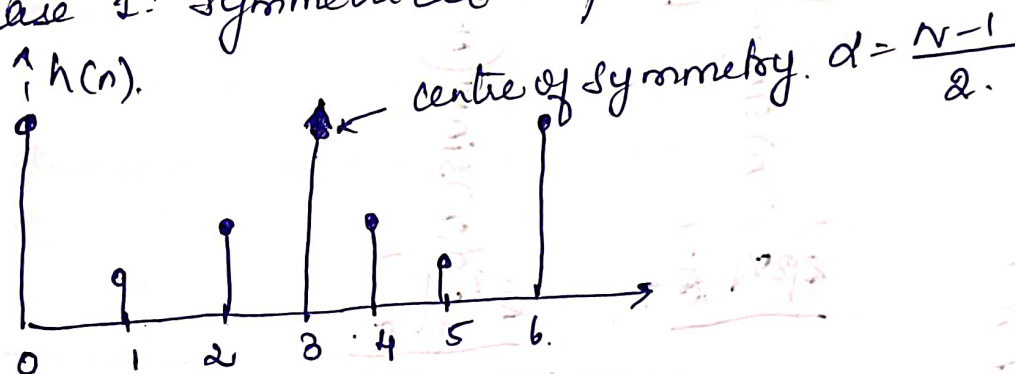 Case 1: Symmetrical
h(n).
centre of symmetry. α = N-1
2.
0 1 2 3 4 5 6.